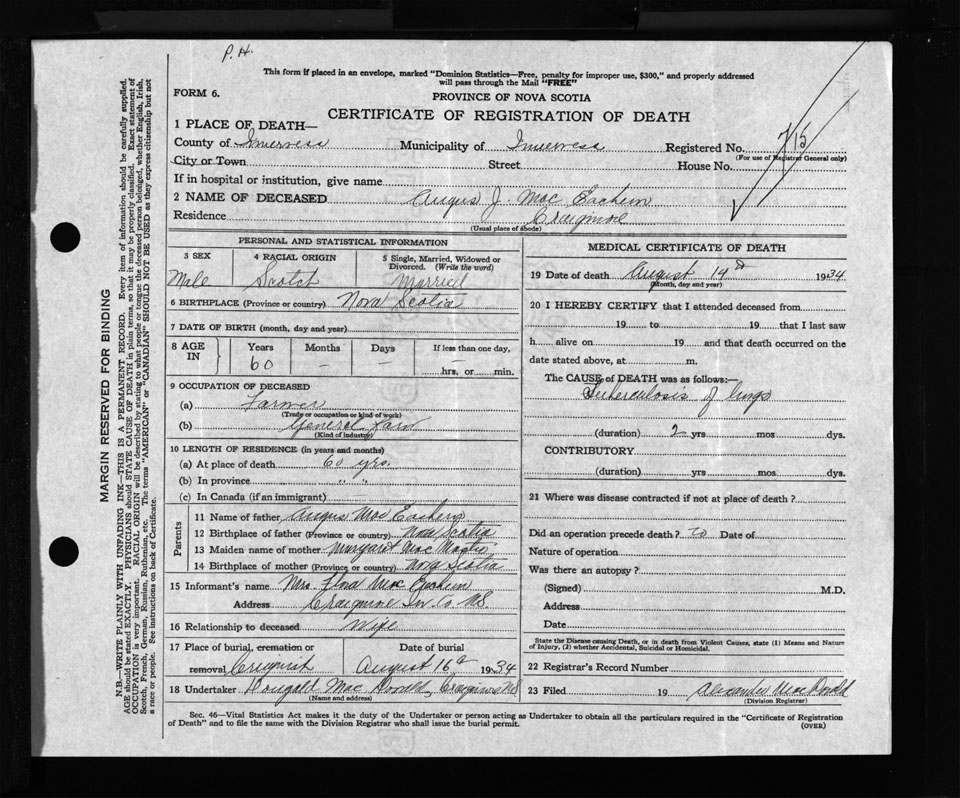 P.H.
This form if placed in an envelope, marked "Dominion Statistics—Free, penalty for improper use, $300," and properly addressed
will pass through the Mail "FREE"
FORM 6.
PROVINCE OF NOVA SCOTIA
CERTIFICATE OF REGISTRATION OF DEATH
1 PLACE OF DEATH—
County of Inverness Municipality of Inverness Registered No. 715
(For use of Registrar General only)
City or Town Street House No.
If in hospital or institution, give name
2 NAME OF DECEASED Angus J. Mac Eachern
Residence Craigmore
(Usual place of abode)
PERSONAL AND STATISTICAL INFORMATION
3 SEX 4 RACIAL ORIGIN 5 Single, Married, Widowed or Divorced. (Write the word)
Male Scotch Married
6 BIRTHPLACE (Province or country) Nova Scotia
7 DATE OF BIRTH (month, day and year)
8 AGE IN Years Months Days If less than one day,
60 — — — hrs. or min.
9 OCCUPATION OF DECEASED
(a) Farmer
(Trade or occupation or kind of work)
(b) General Farm
(Kind of industry)
10 LENGTH OF RESIDENCE (in years and months)
(a) At place of death 60 yrs.
(b) In province " "
(c) In Canada (if an immigrant) —
Parents
11 Name of father Angus Mac Eachern
12 Birthplace of father (Province or country) Nova Scotia
13 Maiden name of mother Margaret Mac Master
14 Birthplace of mother (Province or country) Nova Scotia
15 Informant's name Mrs. Flora Mac Eachern
Address Craigmore Inv. Co. N.S.
16 Relationship to deceased Wife
17 Place of burial, cremation or removal Creignish Date of burial August 16th 1934
18 Undertaker Dougald Mac Donald, Craigmore N.S.
(Name and address)
MEDICAL CERTIFICATE OF DEATH
19 Date of death August 14th 1934
(Month, day and year)
20 I HEREBY CERTIFY that I attended deceased from
19 to 19 that I last saw
h alive on 19 and that death occurred on the
date stated above, at m.
The CAUSE of DEATH was as follows:—
Tuberculosis of lungs
(duration) 2 yrs mos dys.
CONTRIBUTORY
(duration) yrs mos dys.
21 Where was disease contracted if not at place of death?
Did an operation precede death? Date of
Nature of operation
Was there an autopsy?
(Signed) M.D.
Address
Date
State the Disease causing Death, or in death from Violent Causes, state (1) Means and Nature
of Injury, (2) whether Accidental, Suicidal or Homicidal.
22 Registrar's Record Number
23 Filed 19 Alexander Mac Donald
(Division Registrar)
Sec. 46—Vital Statistics Act makes it the duty of the Undertaker or person acting as Undertaker to obtain all the particulars required in the "Certificate of Registration
of Death" and to file the same with the Division Registrar who shall issue the burial permit.
(OVER)
MARGIN RESERVED FOR BINDING
N.B.—WRITE PLAINLY WITH UNFADING INK—THIS IS A PERMANENT RECORD. Every item of information should be carefully supplied.
AGE should be stated EXACTLY. PHYSICIANS should STATE CAUSE OF DEATH in plain terms, so that it may be properly classified. Exact statement of
OCCUPATION is very important. RACIAL ORIGIN will be described by stating to what people or tongue the deceased person belonged, whether English, Irish,
Scotch, French, German, Russian, Ruthenian, etc. The terms "AMERICAN" or "CANADIAN" SHOULD NOT BE USED as they express citizenship but not
a race or people. See instructions on back of Certificate.